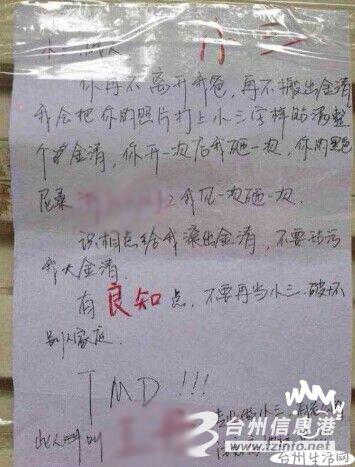 小三
你再不离开我爸，再不搬出金清
我会把你的照片打上小三字样贴满整
个金清，你开一次店我砸一次，你的黑色
尼桑 之我见一次砸一次.
识相点给我滚出金清，不要玷污
我大金清.
有良知点，不要再当小三.破坏
别人家庭.
TMD!!!
去当做小三，
此人叫
台州信息港
www.tzinfo.net
台州生活网